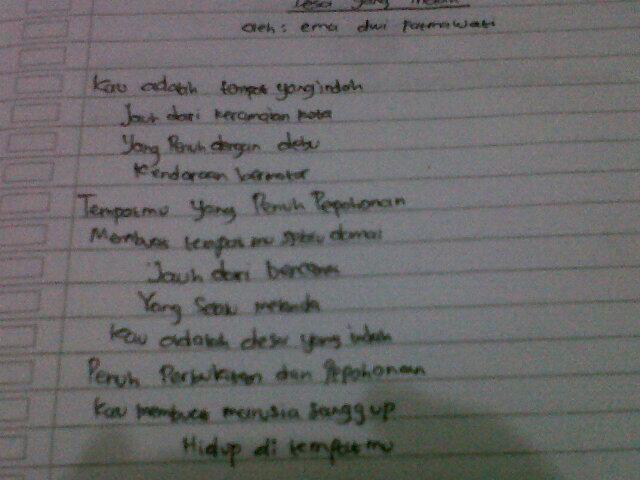 Desa yang indah
oleh: ema dwi Ratmawati
Kau adalah tempat yang indah
Jauh dari keramaian kota
Yang Penuh dengan debu
Kendaraan bermotor
Tempatmu yang Penuh Pepohonan
Membuat tempat mu selalu damai
Jauh dari bencana
Yang selalu melanda
Kau adalah desa yang indah
Penuh Perbukitan dan Pepohonan
Kau membuat manusia sanggup
Hidup di tempatmu